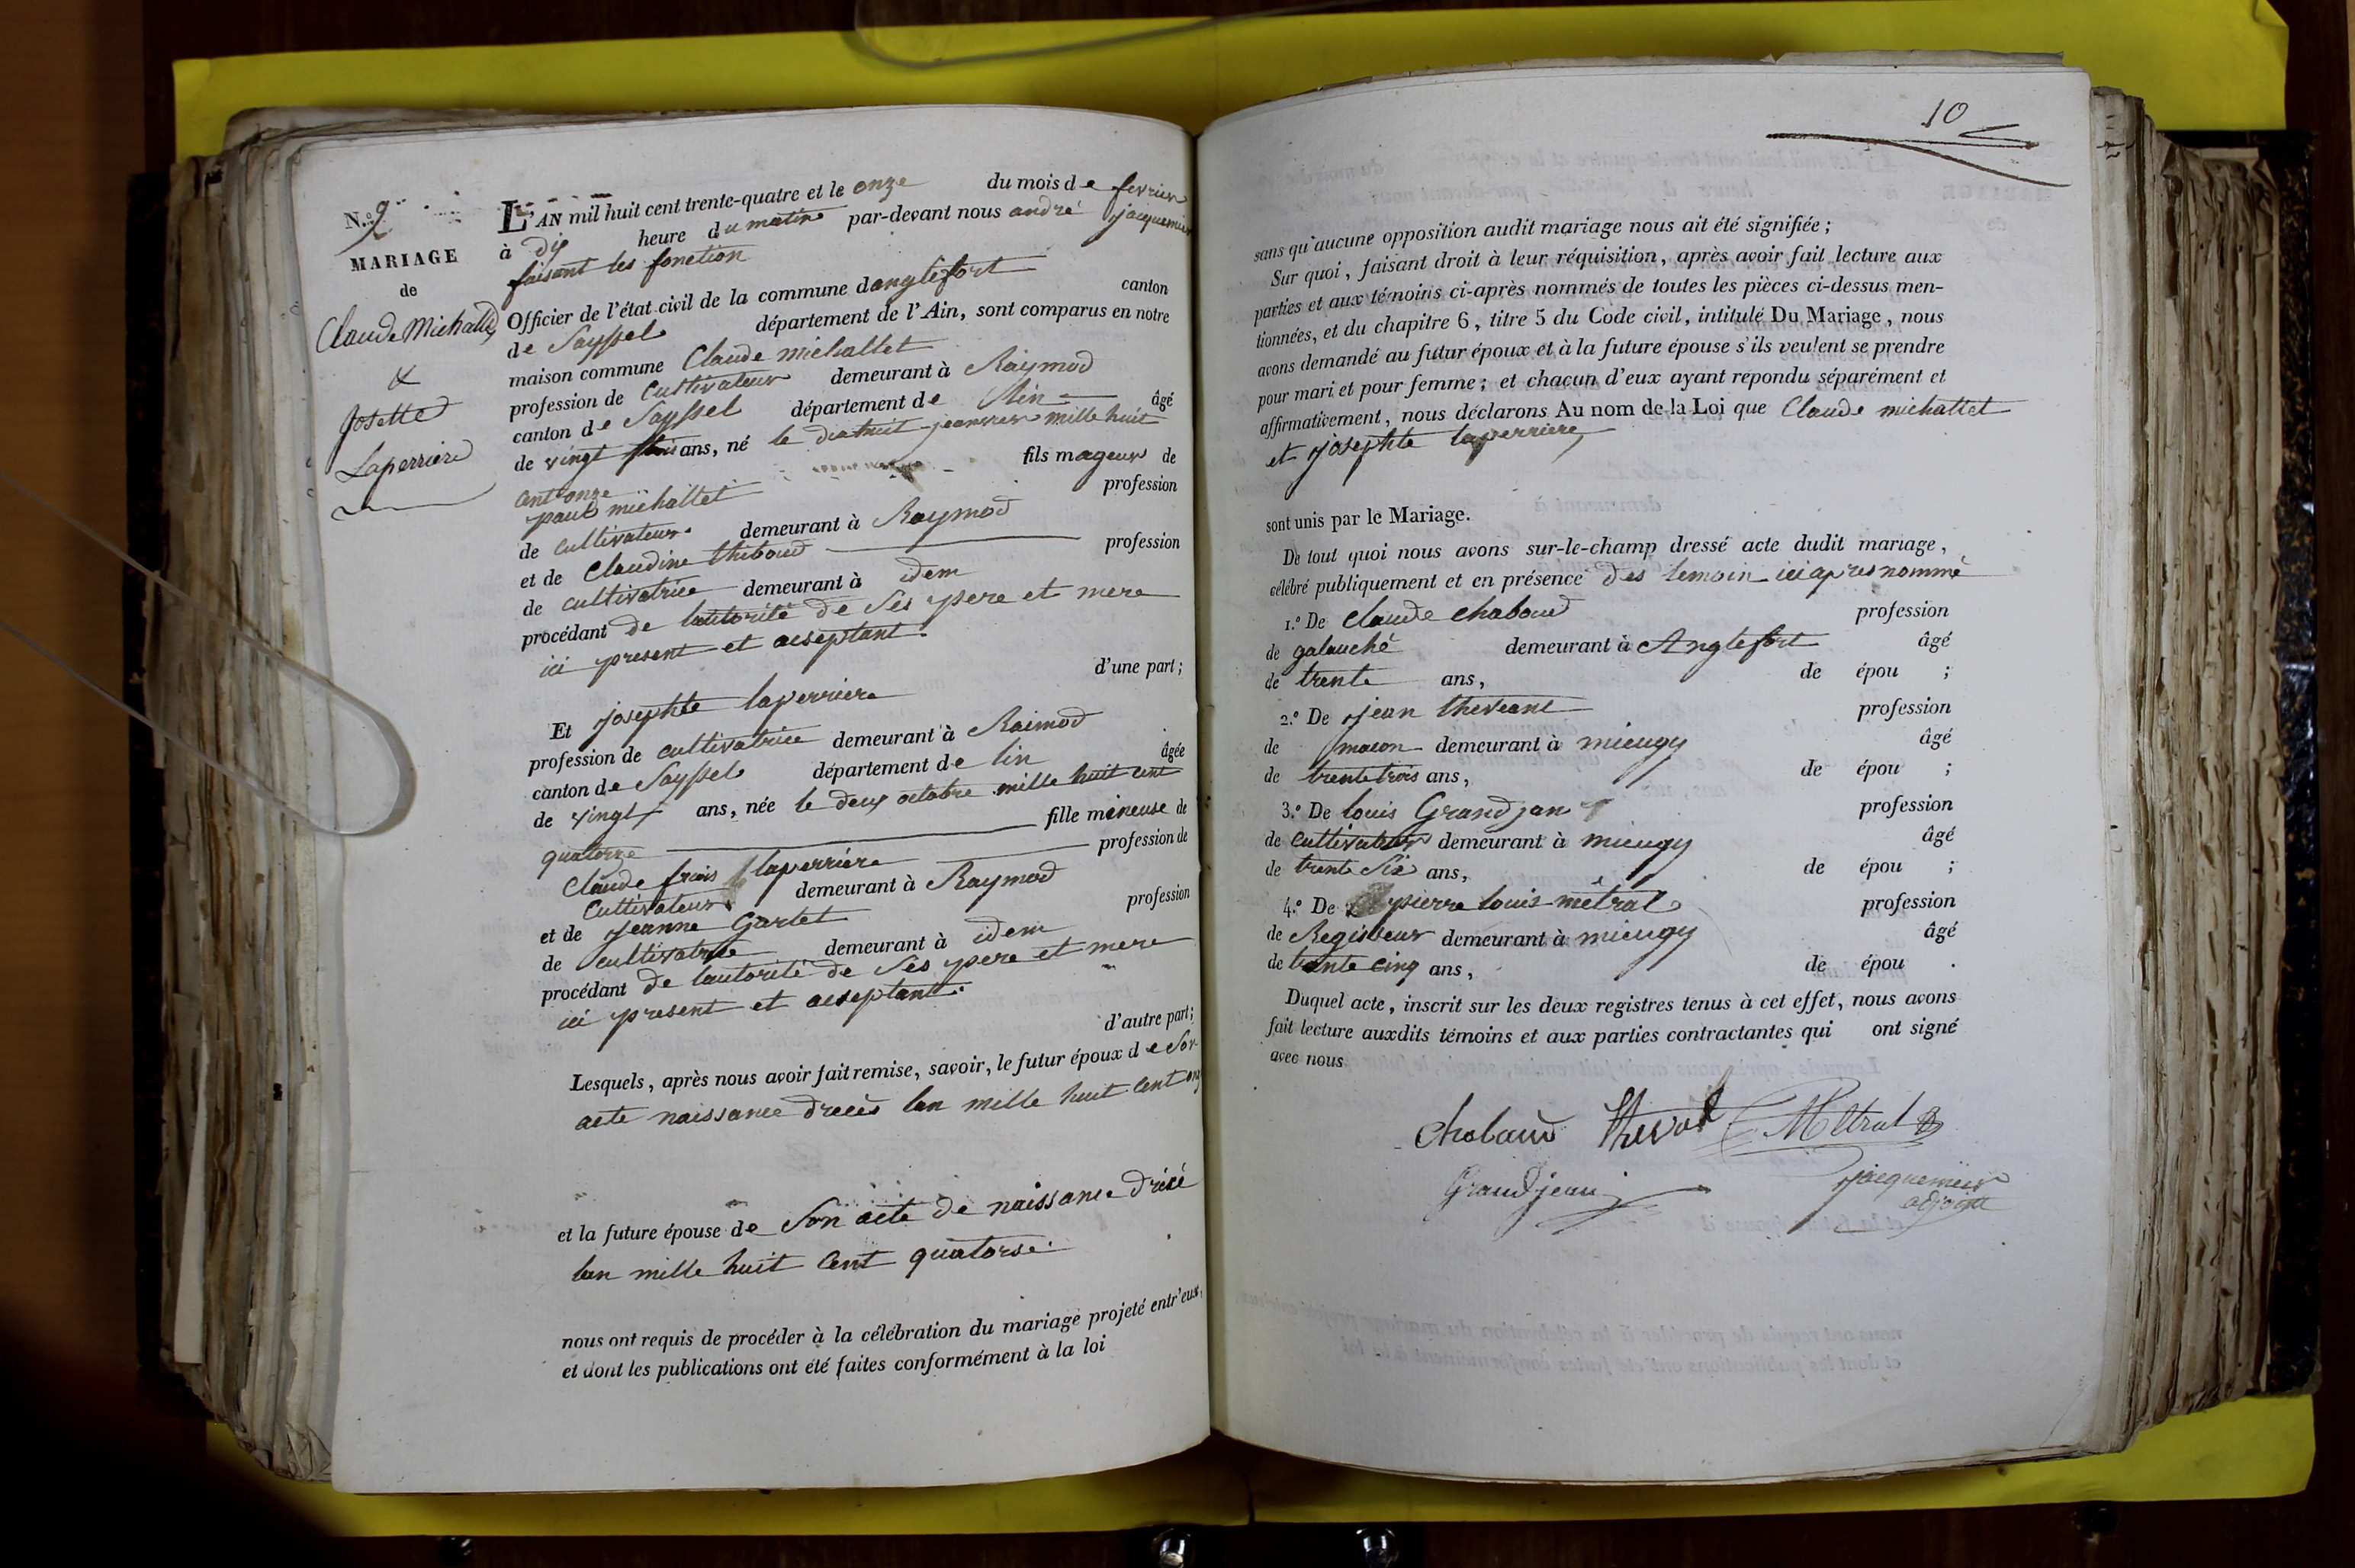 N.° 9
MARIAGE
de
Claude Michallet
&
Josette
Laperriere
L'AN mil huit cent trente-quatre et le onze du mois de fevrier
à dix heure du matin par-devant nous andré jacquemier
faisant les fonction
Officier de l'état civil de la commune danglefort canton
de Sayssel département de l'Ain, sont comparus en notre
maison commune Claude michallet
profession de Cultivateur demeurant à Raymod
canton de Sayssel département de Ain âgé
de vingt trois ans, né le dixhuit jeanvier mille huit
cent onze fils mageur de
paul michallet profession
de cultivateur demeurant à Raymod
et de Claudine thiboud profession
de cultivatrice demeurant à idem
procédant de lautorité de ses pere et mere
ici present et acseptant
d'une part;
Et josephte laperriere
profession de cultivatrice demeurant à Raimod
canton de Sayssel département de lin âgée
de vingt ans, née le deux octobre mille huit cent
quatorze fille mineuse de
Claude frais laperriere profession de
Cultivateur demeurant à Raymod
et de jeanne Gartet profession
de cultivatrise demeurant à idem
procédant de lautorité de ses pere et mere
ici present et acseptant.
d'autre part;
Lesquels, après nous avoir fait remise, savoir, le futur époux de Son
acte naissance drecès lan mille huit Cent onz
et la future épouse de Son acte de naissance drisé
lan mille huit Cent quatorse.
nous ont requis de procéder à la célébration du mariage projeté entr'eux,
et dont les publications ont été faites conformément à la loi
10
sans qu'aucune opposition audit mariage nous ait été signifiée;
Sur quoi, faisant droit à leur réquisition, après avoir fait lecture aux
parties et aux témoins ci-après nommés de toutes les pièces ci-dessus men-
tionnées, et du chapitre 6, titre 5 du Code civil, intitulé Du Mariage, nous
avons demandé au futur époux et à la future épouse s'ils veulent se prendre
pour mari et pour femme; et chacun d'eux ayant répondu séparément et
affirmativement, nous déclarons Au nom de la Loi que Claude michallet
et josephte laperriere
sont unis par le Mariage.
De tout quoi nous avons sur-le-champ dressé acte dudit mariage,
célébré publiquement et en présence des temoin ici apres nommé
1.° De Claude Chaboud profession
de galauché demeurant à Anglefort âgé
de trente ans, de épou ;
2.° De jean theveant profession
de macon demeurant à mieugy âgé
de trente trois ans, de épou ;
3.° De louis Grandjan profession
de cultivateur demeurant à mieugy âgé
de trente six ans, de épou ;
4.° De pierre louis métral profession
de Regisseur demeurant à mieugy âgé
de trente cinq ans, de épou .
Duquel acte, inscrit sur les deux registres tenus à cet effet, nous avons
fait lecture auxdits témoins et aux parties contractantes qui ont signé
avec nous
Chaboud Metral
Grandjean jacquemier
adjoint